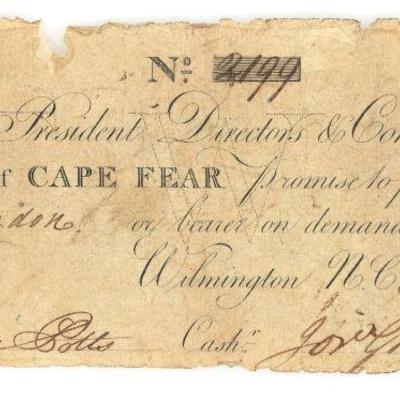 No. 2199
President Directors & Co
f CAPE FEAR promise to p
don. or bearer on demand
Wilmington N.C.
Potts Cashr.